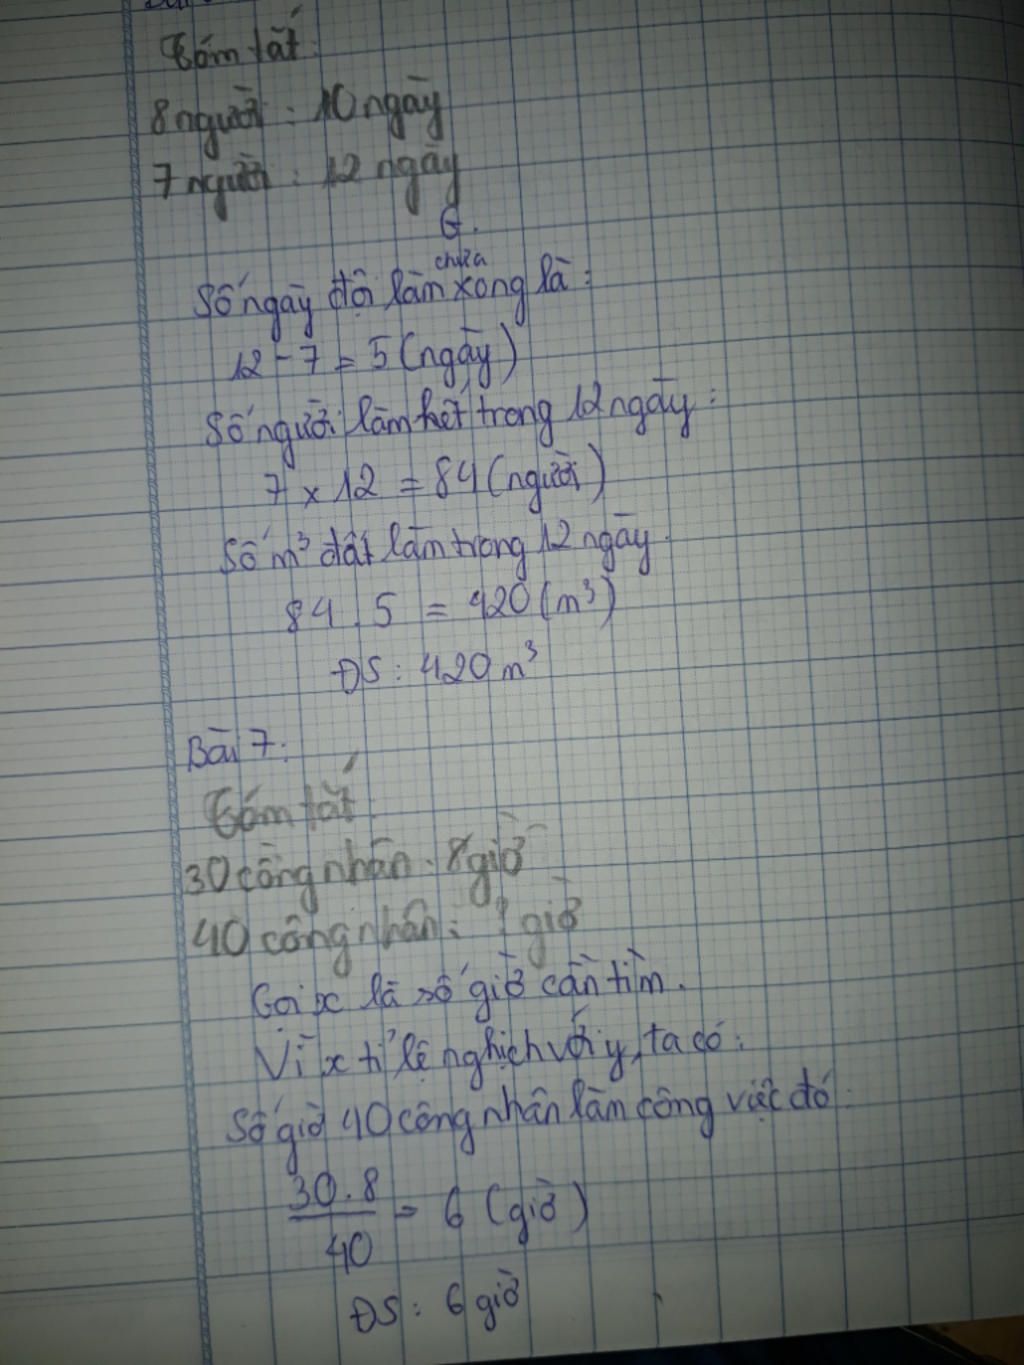 Tóm tắt:
8 người : 10 ngày
7 người : 12 ngày
G.
Số ngày đội làm chưa xong là :
12 - 7 = 5 (ngày)
Số người làm hết trong 12 ngày :
7 x 12 = 84 (người)
Số m³ đất làm trong 12 ngày
84 . 5 = 420 (m³)
ĐS : 420 m³
Bài 7:
Tóm tắt
30 công nhân : 8 giờ
40 công nhân : ? giờ
Gọi x là số giờ cần tìm.
Vì x tỉ lệ nghịch với y, ta có :
Số giờ 40 công nhân làm công việc đó
30 . 8
40
= 6 (giờ)
ĐS : 6 giờ